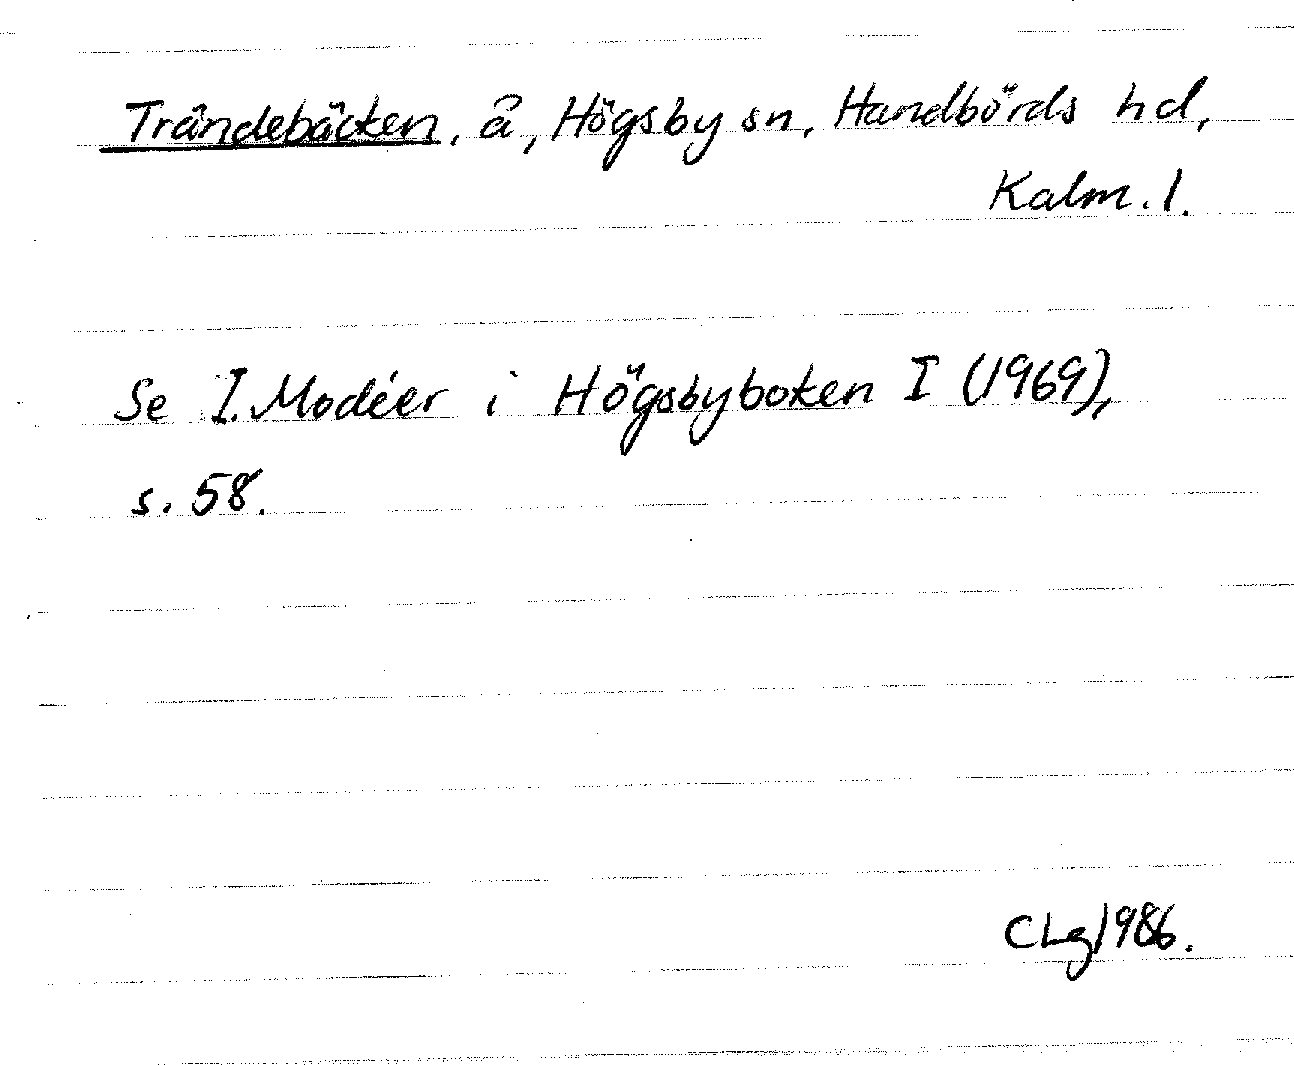 Trändebäcken, å, Högsby sn, Handbörds hd,
Kalm. l.
Se I. Modéer i Högsbyboken I (1969),
s. 58.
CLg 1986.